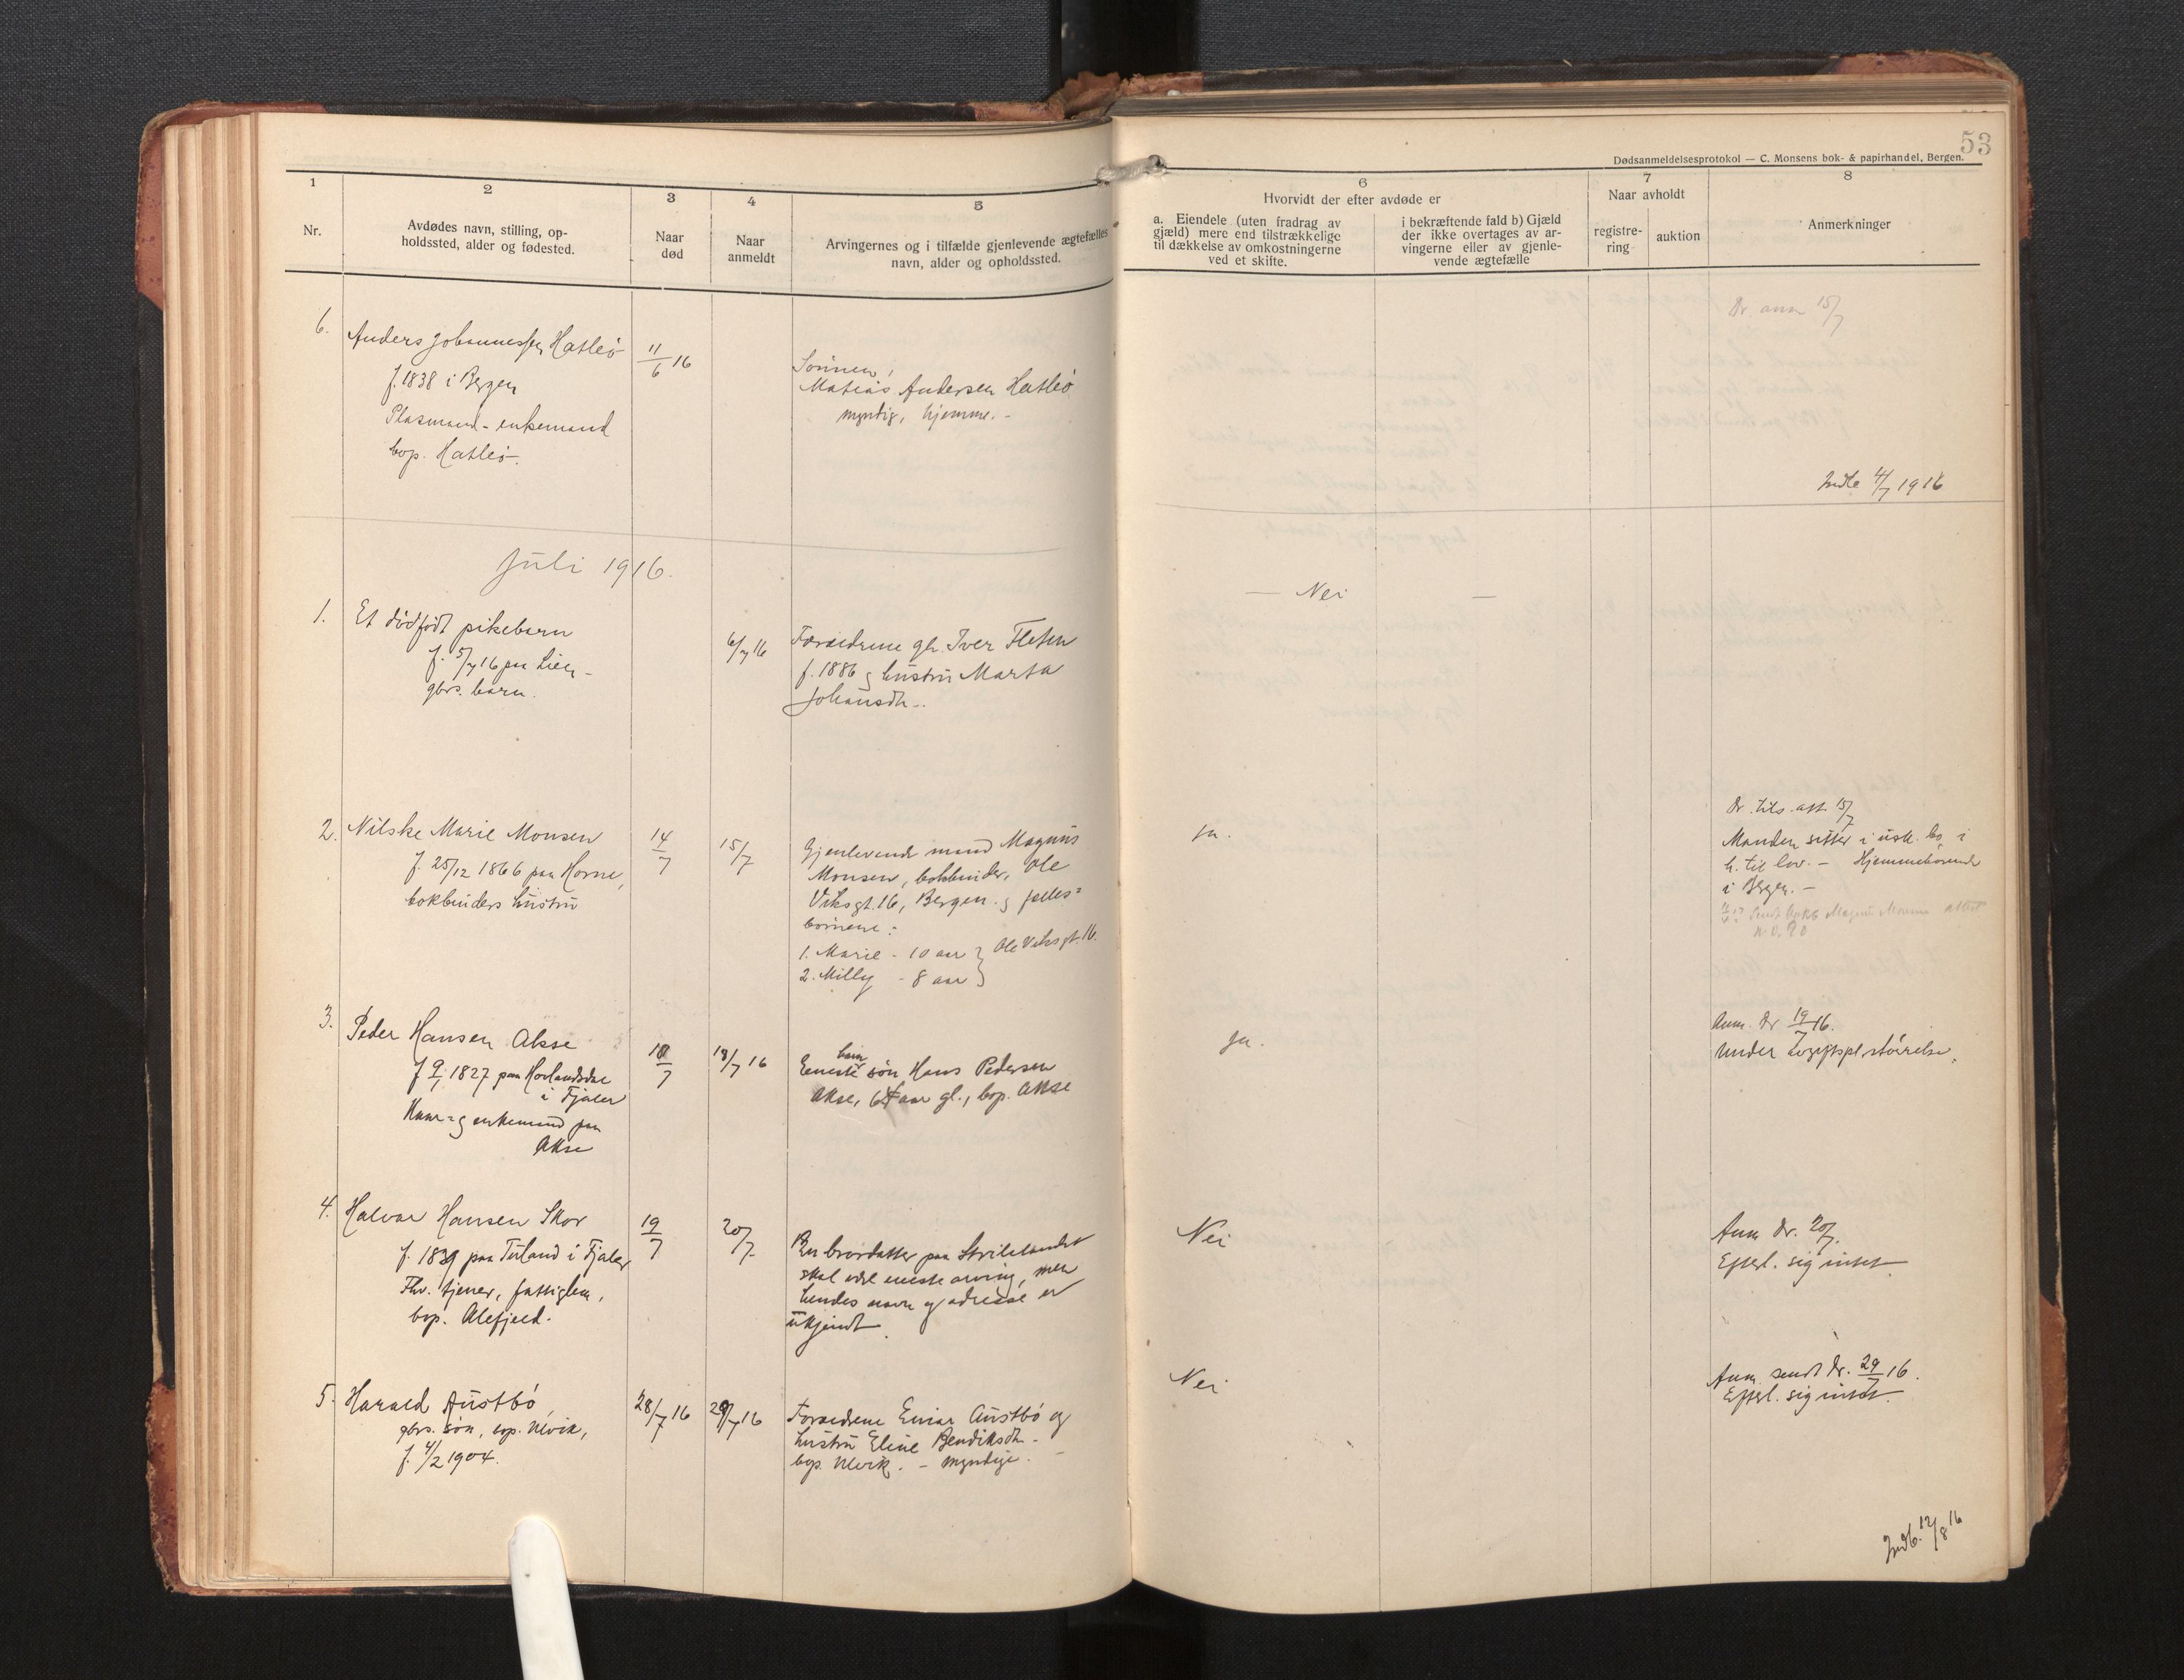 53
Dødsanmeldelsesprotokol — C. Monsens bok- & papirhandel, Bergen.
1
2
3
4
5
6
7
8
Nr.
Avdødes navn, stilling, op-
holdssted, alder og fødested.
Naar
død
Naar
anmeldt
Arvingernes og i tilfælde gjenlevende ægtefælles
navn, alder og opholdssted.
Hvorvidt der efter avdøde er
a. Eiendele (uten fradrag av
gjæld) mere end tilstrækkelige
til dækkelse av omkostningerne
ved et skifte.
i bekræftende fald b) Gjæld
der ikke overtages av ar-
vingerne eller av gjenle-
vende ægtefælle
Naar avholdt
registre-
ring
auktion
Anmerkninger
6.
Anders Johannessen Hatleö
f. 1838 i Bergen
Plasmand - enkemand
bop. Hatleö.
11/6 16
Sönnen,
Matias Andersen Hatleö
myndig, hjemme. -
Dr. anm 15/7
4/7 1916
Juli 1916.
1.
Et dödfödt pikebarn
f. 5/7 16 paa Lien -
gbrs. barn.
6/7 16
Forældrene gbr. Iver Fleten
f. 1886 og hustru Marta
Johansdtr..
— Nei —
2.
Nilske Marie Monsen
f. 25/12 1866 paa Horne,
bokbinders hustru
14/7
15/7
Gjenlevende mand Magnus
Monsen, bokbinder, Ole
Viksgt. 16, Bergen. og fælles=
börnene:
1. Marie - 10 aar } Ole Viksgt. 16.
2. Milly - 8 aar }
Ja.
Dr. tils. att. 15/7
Manden sitter i usk. bo, i
h. til lov. - Hjemmehörende
i Bergen. -
Magnus Monsen attest
3.
Peder Hansen Akse
f 9/1 1827 paa Hovlandsdal
i Fjaler
Kaar= og enkemand paa
Akse
18/7
18/7 16
barn
Eneste sön Hans Pedersen
Akse, 64 aar gl., bop. Akse
Ja.
Anm. Dr 19/7 16.
Under avgiftspl. störrelse.
4.
Halvar Hansen Skor
f. 1839 paa Tuland i Fjaler
Fhv. tjener, fattiglem,
bop. Alefjeld.
19/7
20/7
En brordatter paa Strilelandet
skal være eneste arving, men
hendes navn og adresse er
ukjendt.
Nei
Anm Dr. 20/7.
Efterl. sig intet.
5.
Harald Austbö,
gbrs. sön, bop. Ulvik,
f. 4/2 1904.
28/7 16
29/7 16
Forældrene Einar Austbö og
hustru Eline Bendiksdtr. -
bop. Ulvik. - myndige. -
Nei
Anm. sendt Dr. 29/7 16.
Efterl. sig intet.
Indb. 12/8 16